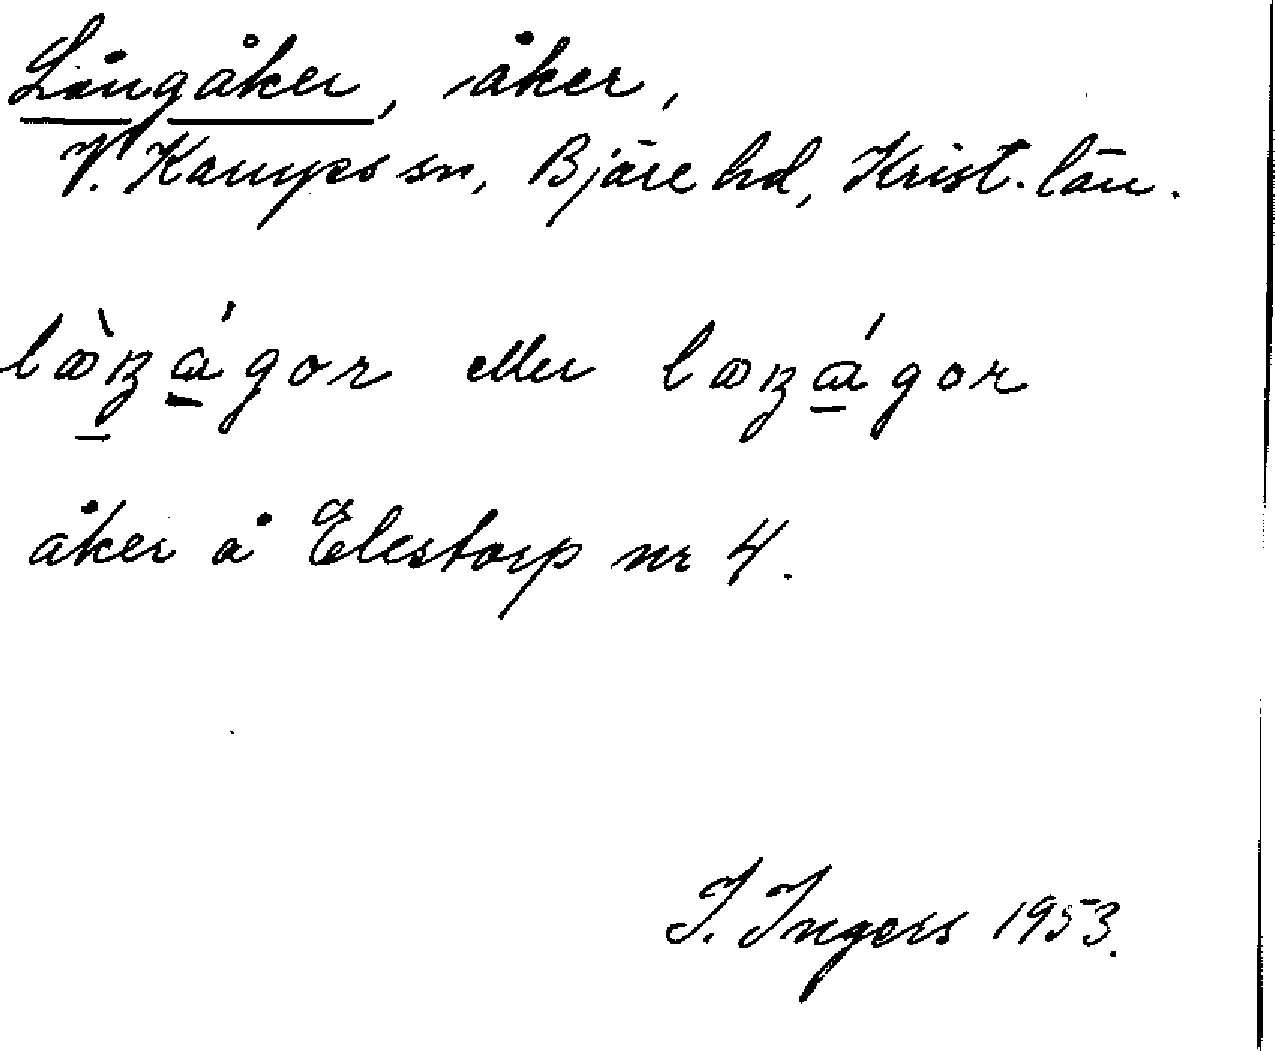 Långåker, åker,
V. Karups sn, Bjäre hd, Krist. län.
eller
åker å Elestorp nr 4.
I. Ingers 1953.